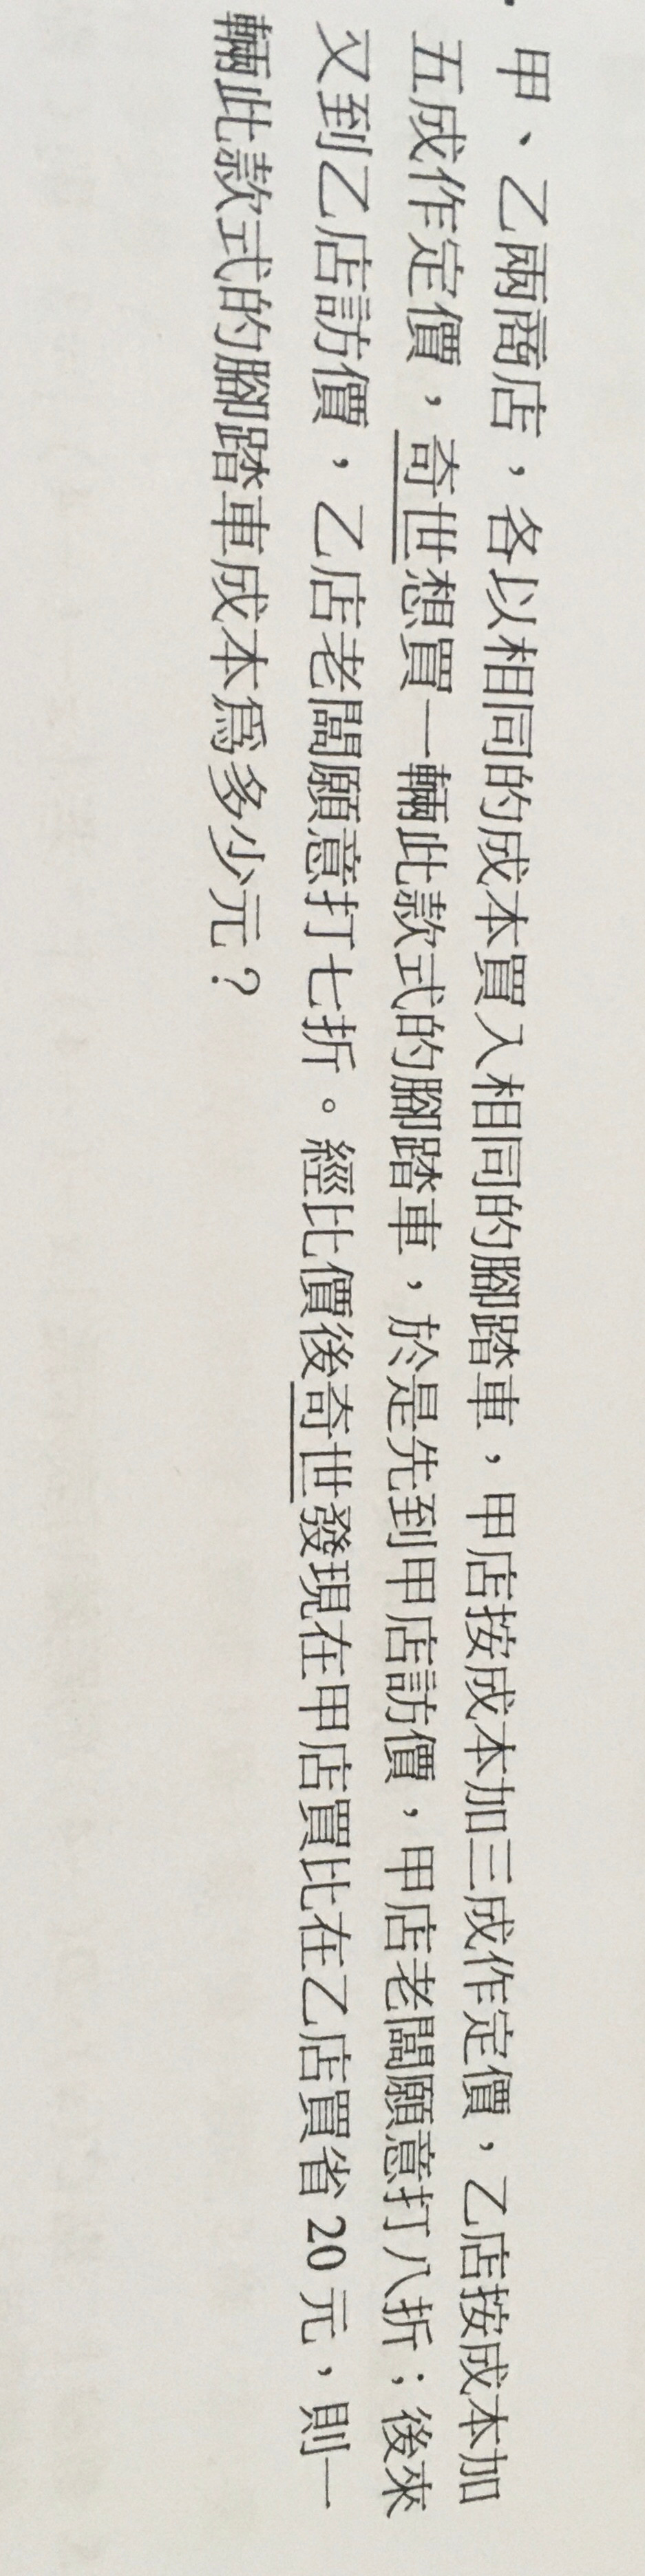 甲、乙兩商店，各以相同的成本買入相同的腳踏車，甲店按成本加三成作定價，乙店按成本加
五成作定價，奇世想買一輛此款式的腳踏車，於是先到甲店訪價，甲店老闆願意打八折；後來
又到乙店訪價，乙店老闆願意打七折。經比價後奇世發現在甲店買比在乙店買省 20 元，則一
輛此款式的腳踏車成本為多少元？